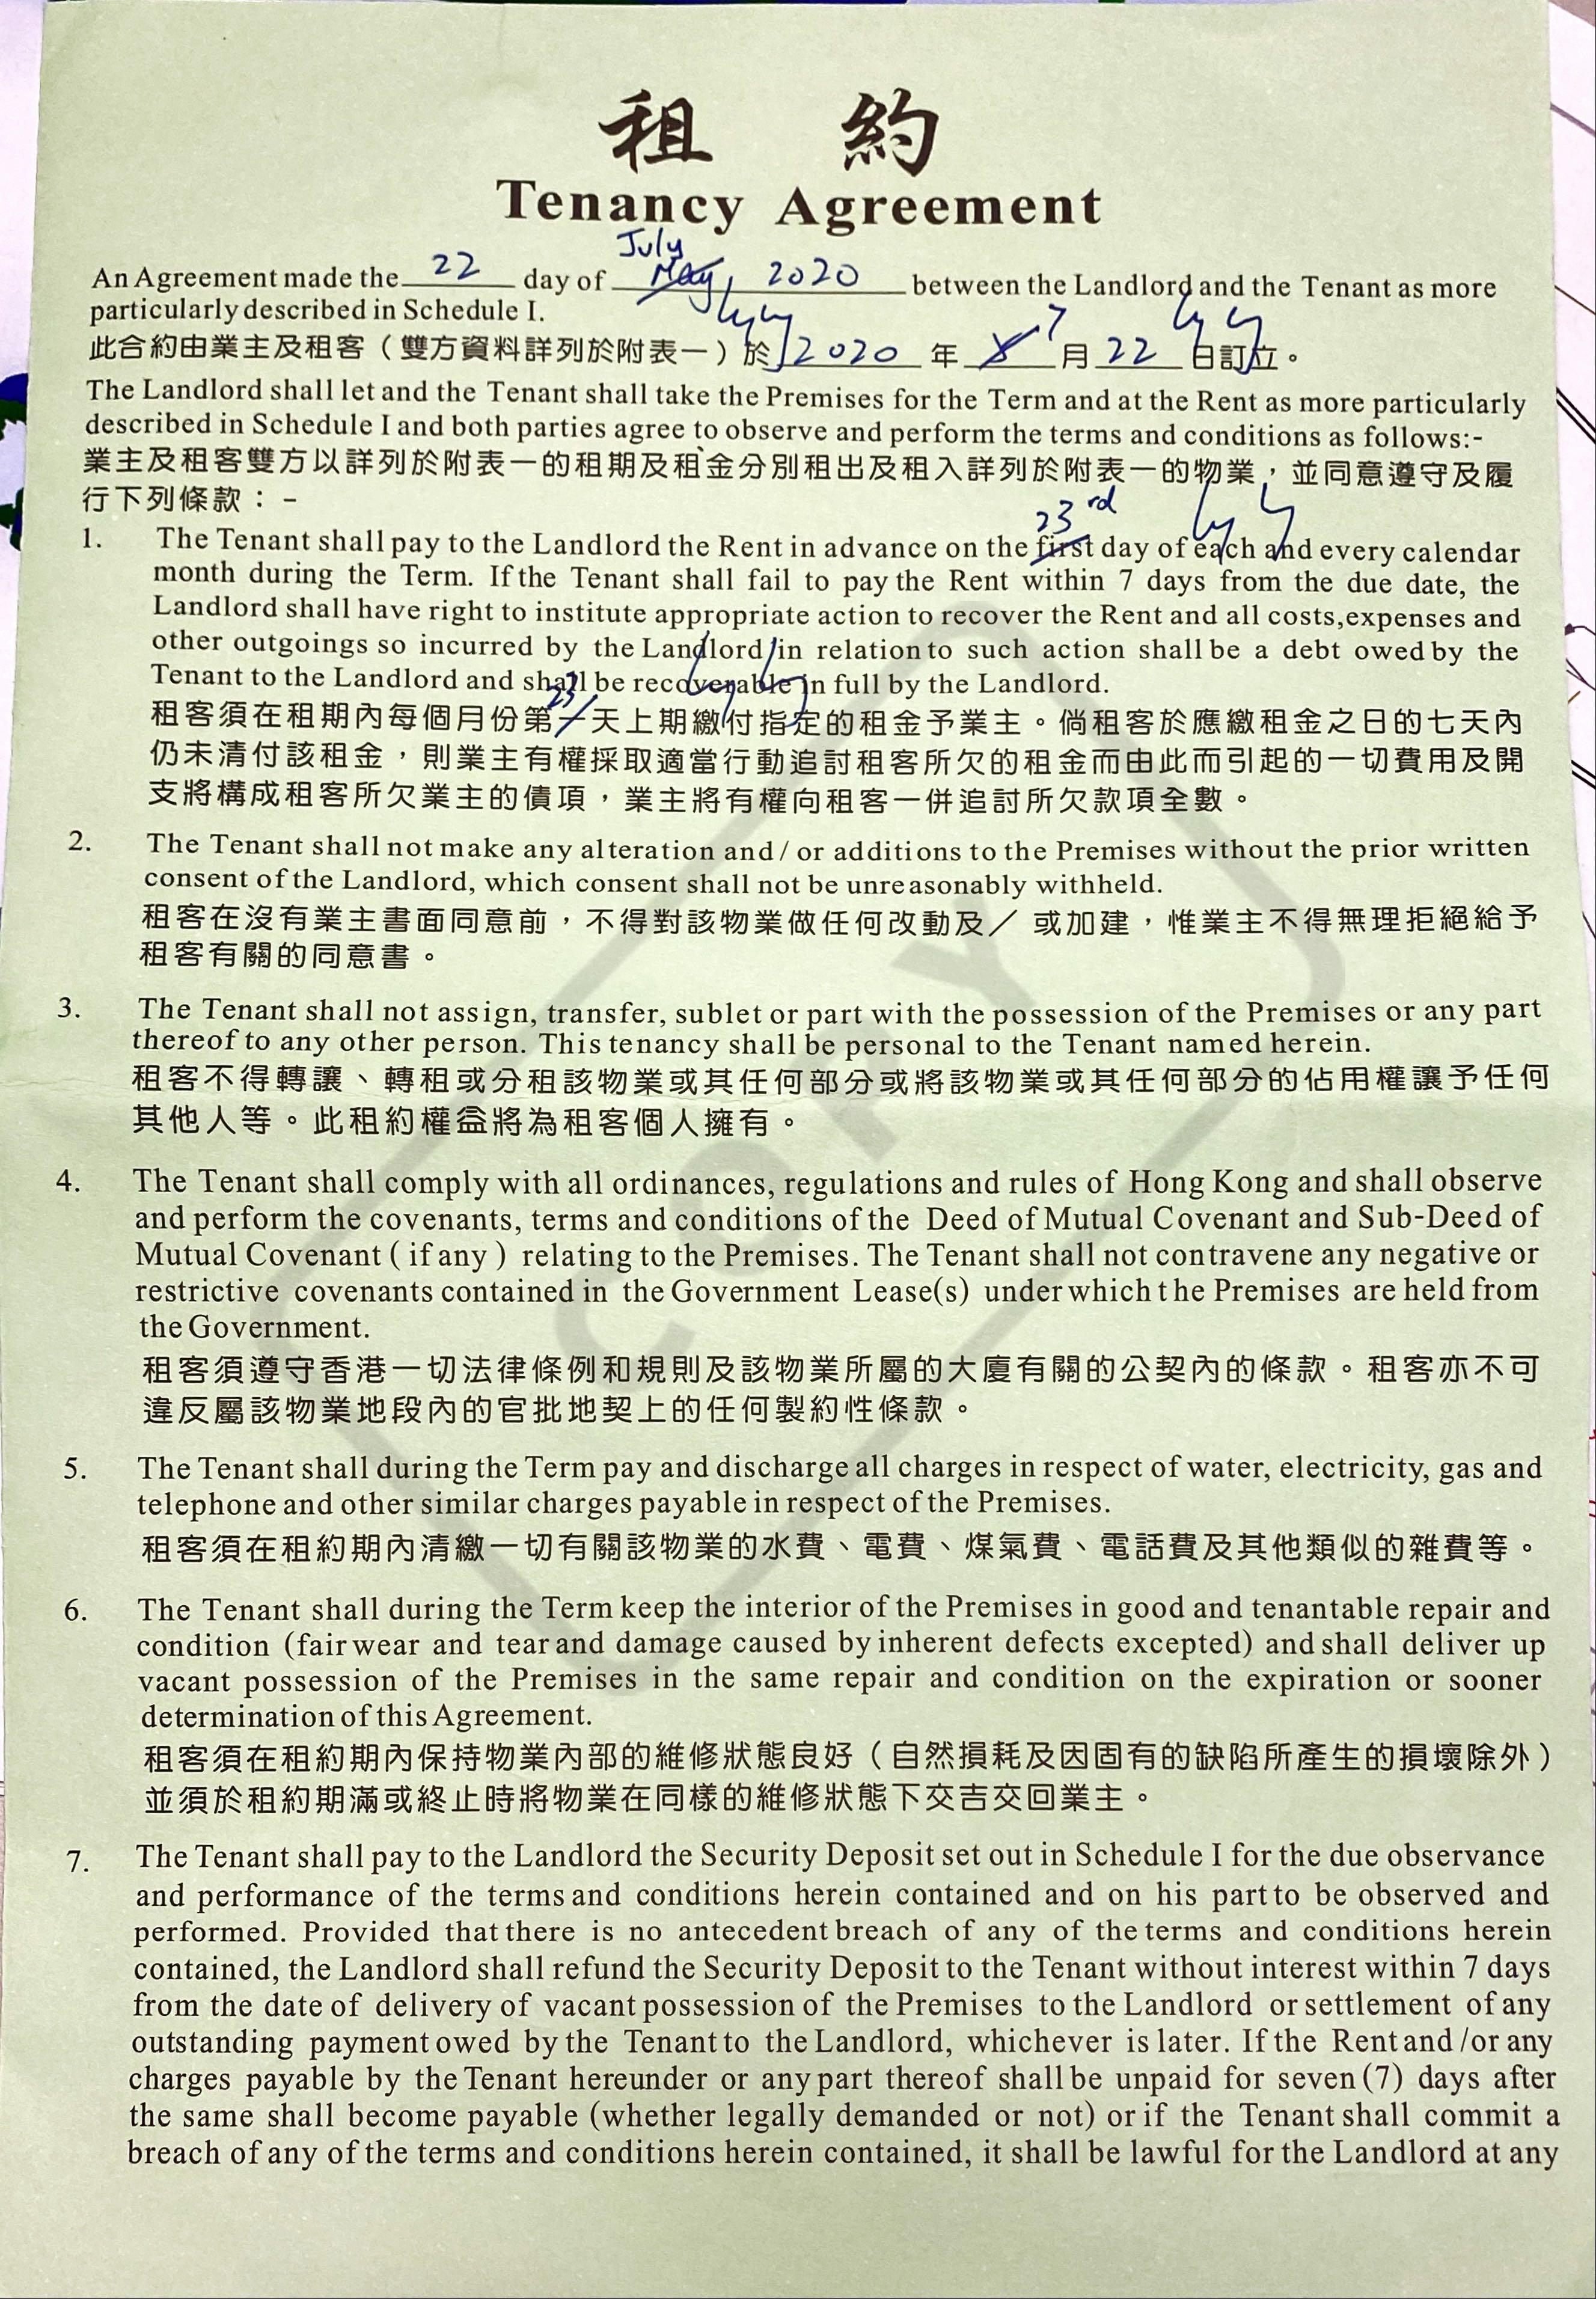 租 約
Tenancy Agreement
July
An Agreement made the 22 day of May, 2020 between the Landlord and the Tenant as more
particularly described in Schedule I.
7
此合約由業主及租客（雙方資料詳列於附表一）於 2020 年 月 22 日訂立。
The Landlord shall let and the Tenant shall take the Premises for the Term and at the Rent as more particularly
described in Schedule I and both parties agree to observe and perform the terms and conditions as follows:-
業主及租客雙方以詳列於附表一的租期及租金分別租出及租入詳列於附表一的物業，並同意遵守及履
行下列條款：-
23rd
1. The Tenant shall pay to the Landlord the Rent in advance on the first day of each and every calendar
month during the Term. If the Tenant shall fail to pay the Rent within 7 days from the due date, the
Landlord shall have right to institute appropriate action to recover the Rent and all costs,expenses and
other outgoings so incurred by the Landlord in relation to such action shall be a debt owed by the
Tenant to the Landlord and shall be recoverable in full by the Landlord.
23
租客須在租期內每個月份第一天上期繳付指定的租金予業主。倘租客於應繳租金之日的七天內
仍未清付該租金，則業主有權採取適當行動追討租客所欠的租金而由此而引起的一切費用及開
支將構成租客所欠業主的債項，業主將有權向租客一併追討所欠款項全數。
2. The Tenant shall not make any alteration and/ or additions to the Premises without the prior written
consent of the Landlord, which consent shall not be unreasonably withheld.
租客在沒有業主書面同意前，不得對該物業做任何改動及／ 或加建，惟業主不得無理拒絕給予
租客有關的同意書。
3. The Tenant shall not assign, transfer, sublet or part with the possession of the Premises or any part
thereof to any other person. This tenancy shall be personal to the Tenant named herein.
租客不得轉讓、轉租或分租該物業或其任何部分或將該物業或其任何部分的佔用權讓予任何
其他人等。此租約權益將為租客個人擁有。
4. The Tenant shall comply with all ordinances, regulations and rules of Hong Kong and shall observe
and perform the covenants, terms and conditions of the Deed of Mutual Covenant and Sub-Deed of
Mutual Covenant ( if any ) relating to the Premises. The Tenant shall not contravene any negative or
restrictive covenants contained in the Government Lease(s) under which the Premises are held from
the Government.
租客須遵守香港一切法律條例和規則及該物業所屬的大廈有關的公契內的條款。租客亦不可
違反屬該物業地段內的官批地契上的任何製約性條款。
5. The Tenant shall during the Term pay and discharge all charges in respect of water, electricity, gas and
telephone and other similar charges payable in respect of the Premises.
租客須在租約期內清繳一切有關該物業的水費、電費、煤氣費、電話費及其他類似的雜費等。
6. The Tenant shall during the Term keep the interior of the Premises in good and tenantable repair and
condition (fair wear and tear and damage caused by inherent defects excepted) and shall deliver up
vacant possession of the Premises in the same repair and condition on the expiration or sooner
determination of this Agreement.
租客須在租約期內保持物業內部的維修狀態良好（自然損耗及因固有的缺陷所產生的損壞除外）
並須於租約期滿或終止時將物業在同樣的維修狀態下交吉交回業主。
7. The Tenant shall pay to the Landlord the Security Deposit set out in Schedule I for the due observance
and performance of the terms and conditions herein contained and on his part to be observed and
performed. Provided that there is no antecedent breach of any of the terms and conditions herein
contained, the Landlord shall refund the Security Deposit to the Tenant without interest within 7 days
from the date of delivery of vacant possession of the Premises to the Landlord or settlement of any
outstanding payment owed by the Tenant to the Landlord, whichever is later. If the Rent and /or any
charges payable by the Tenant hereunder or any part thereof shall be unpaid for seven (7) days after
the same shall become payable (whether legally demanded or not) or if the Tenant shall commit a
breach of any of the terms and conditions herein contained, it shall be lawful for the Landlord at any
COPY